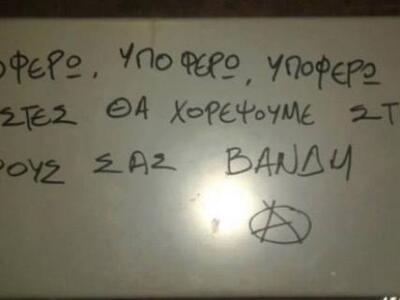 ΟΦΕΡΩ, ΥΠΟΦΕΡΩ, ΥΠΟΦΕΡΩ
ΣΤΕΣ ΘΑ ΧΟΡΕΨΟΥΜΕ ΣΤ
ΡΟΥΣ ΣΑΣ ΒΑΝΔΗ
Α